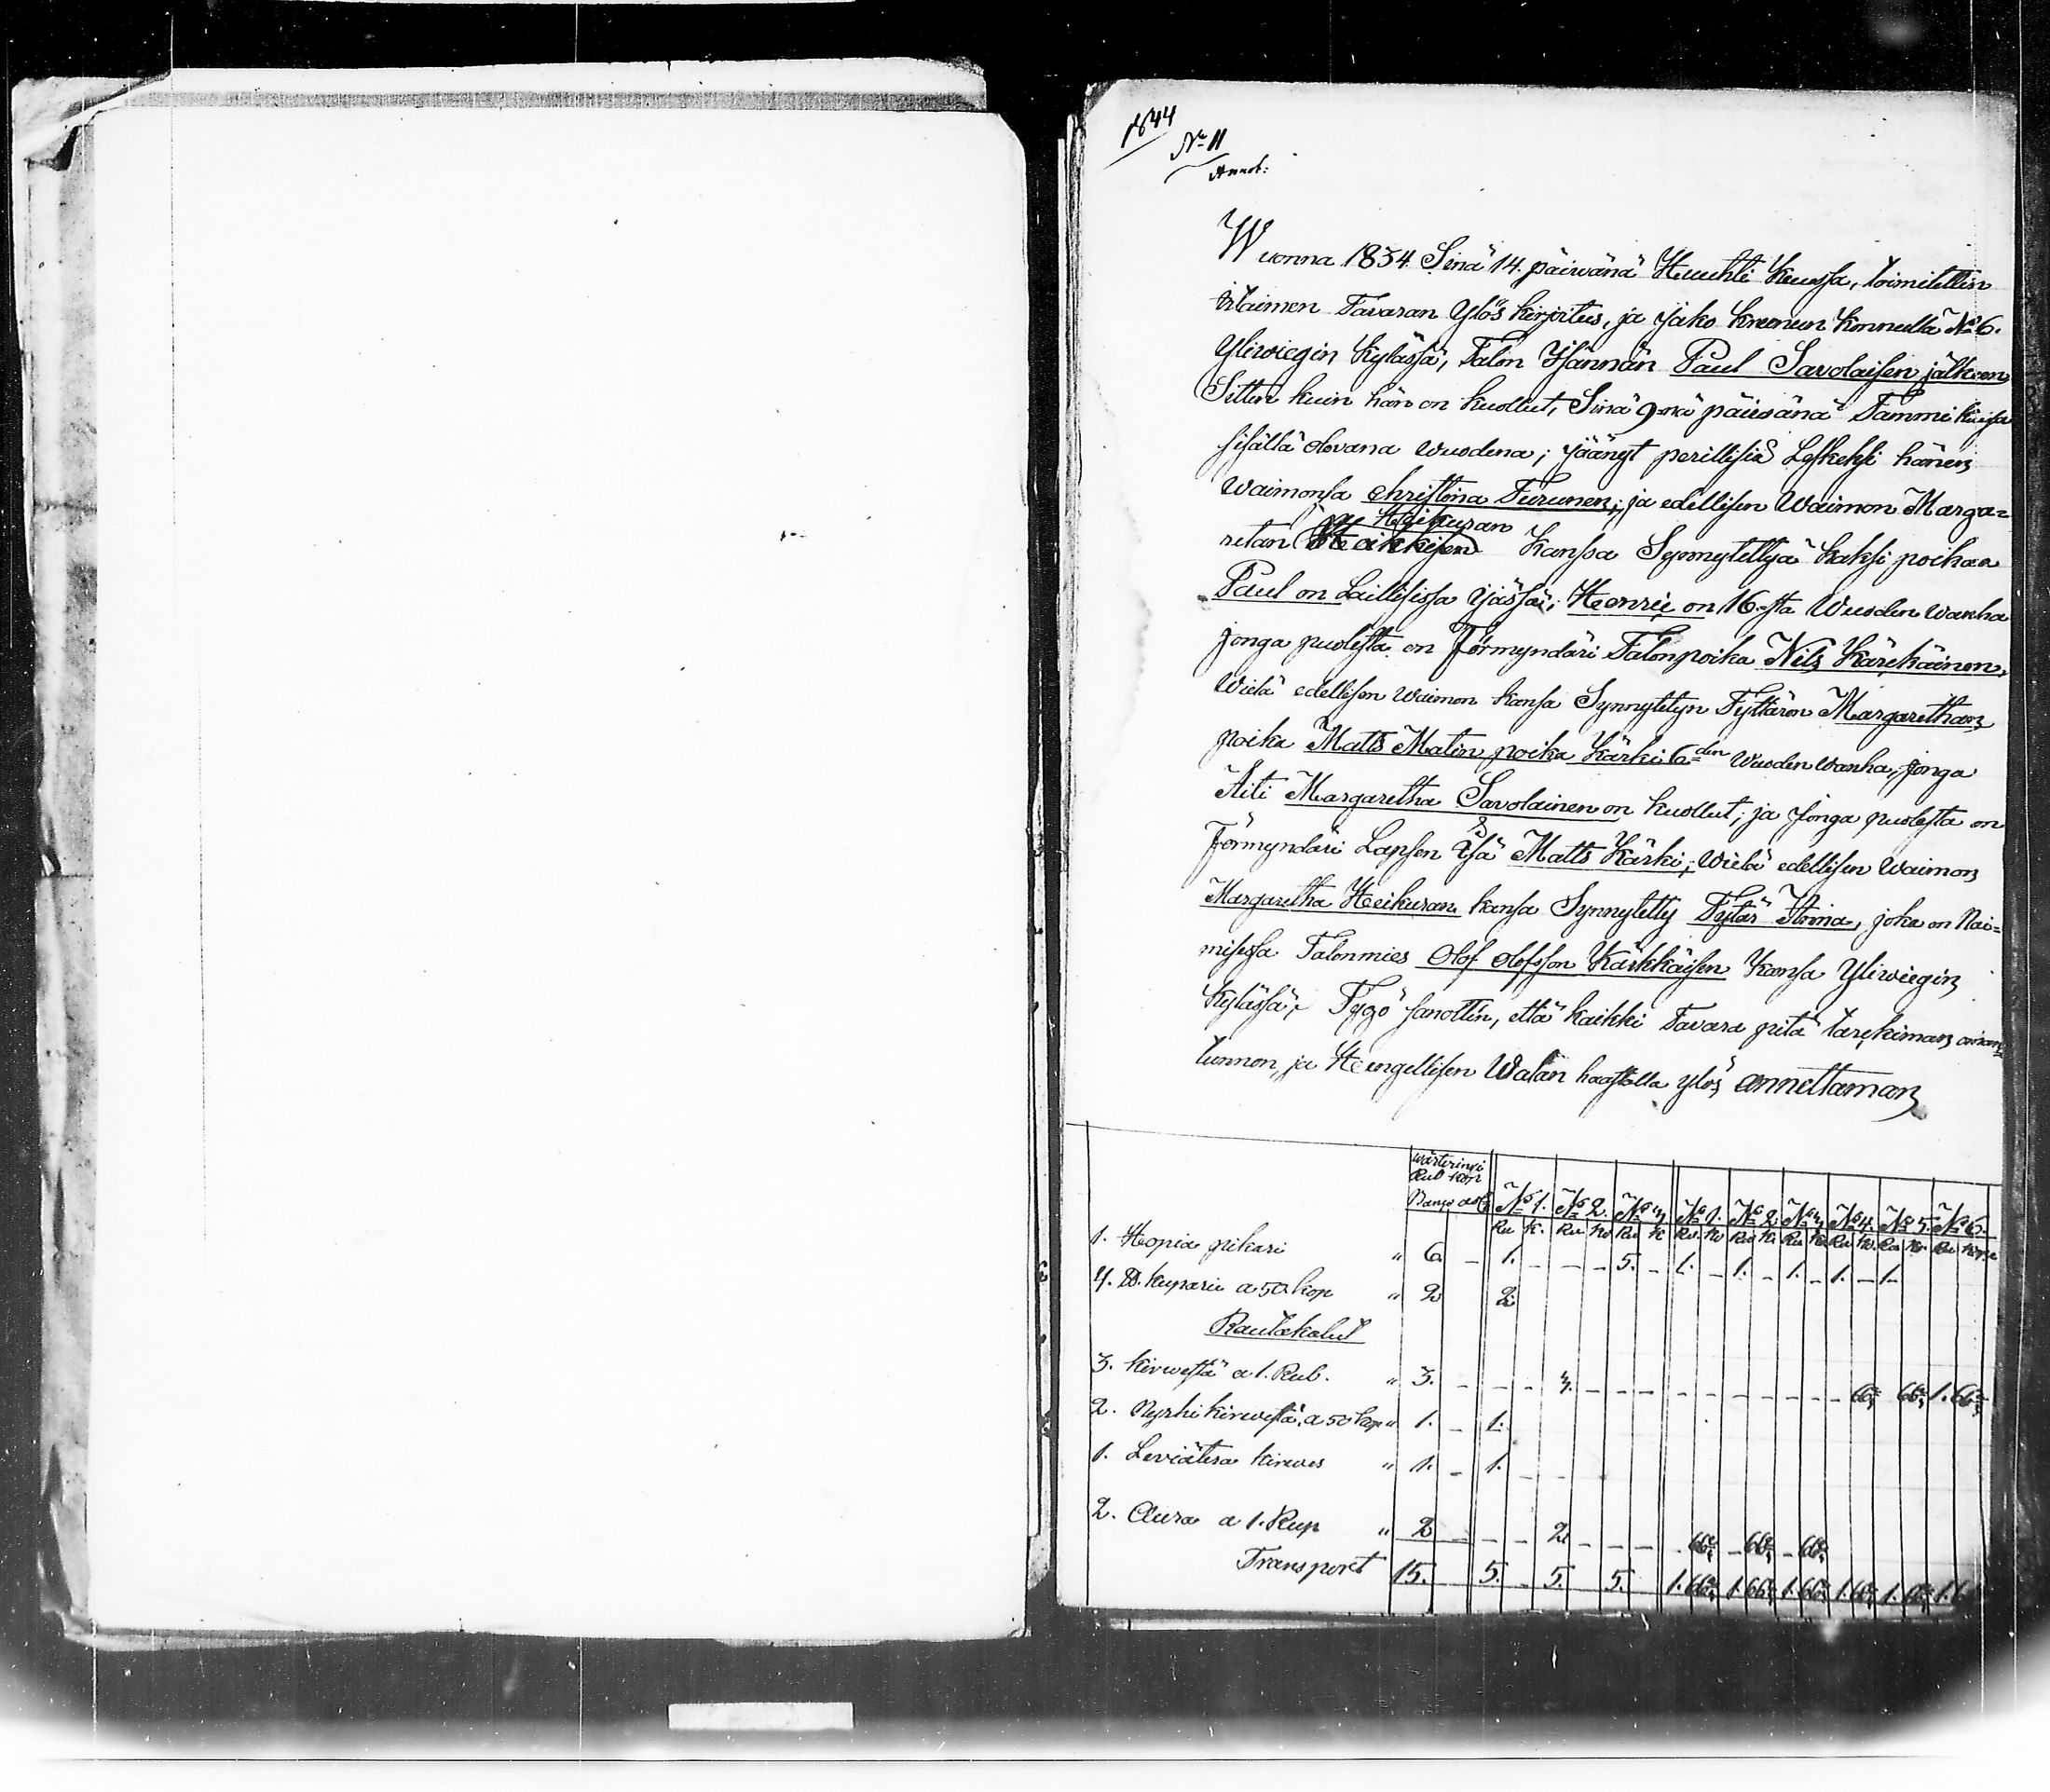 1844
No 11
Annot:
Wuonna 1834 Sinä 14. päiwänä Huuhti Kuussa, toimitettin
irtaimen Tavaran Ylös kirjoitus, ja Jako kruunun konnulla No 6.
Yliwiegin kylässä, Talon Isännän Paul Savolaisen jälkeen
Sitten kuin hän on kuollut, Sinä 9nä päiwänä Tammi kuusa
sisällä olevana wuodena; jäänyt perillisiä Leskeksi hänen
waimonsa Christina Turunen; ja edellisen Waimon Marga=
ja Heikuran
retan Heikkisen kanssa Synnytettyjä kaksi poikaa
Paul on Laillisissa Jässä; Henric on 16-sta Wuoden wanha
jonga puolesta on Förmyndäri Talonpoika Nils Kärkäinen,
Wielä edellisen waimon kansa Synnytetyn Tyttären Margarethan
poika Matts Matin poika Kärki 6den Wuoden wanha, jonga
Äiti Margaretha Savolainen on kuollut; ja Jonga puolesta on
Förmyndäri Lapsen Isä Matts Kärki; Wielä edellisen Waimon
Margaretha Heikuran kansa Synnytetty Tytär Anna, joka on Nai=
misissa Talonmies Olof Olofsson Kärkkäisen kansa Yliwiegin
kylässä; Tygö sanottin, että kaikki Tavara pitä tarkiman oman
tunnon, ja Hengellisen Walan haastolla ylös annettaman
wärteringi
Rub Kop
Banco ass
No 1. No 2. No 3. No 1. No 2. No 3. No 4. No 5. No 6.
Ru K. Ru Ko Ru K Ru. Ko Ru K. Ru K Ru Ko. Ru Ko Ru Kop
1. Hopia pikari " 6 - 1. - - - 5. - 1. - 1. - 1. - 1. - 1-
4. ℔. kuparia a 50 kop " 2 2
Rautakalut
3. kirwestä a 1. Rub. " 3. - - - 3. - - - - - - - - - 66⅔ 66⅔ 1.66⅔
2. Nyrhi kirwestä, a 50 kop " 1. - 1.
1. Leviäterä kirwes " 1. - 1. - -
2. Aura a 1. Rup " 2 - - - 2 - - - - 66⅔ - 66⅔ - 66⅔
Transport 15. 5. - 5. 5. 1.66⅔ 1.66⅔ 1.66⅔ 1.66⅔ 1.66⅔ 1.6